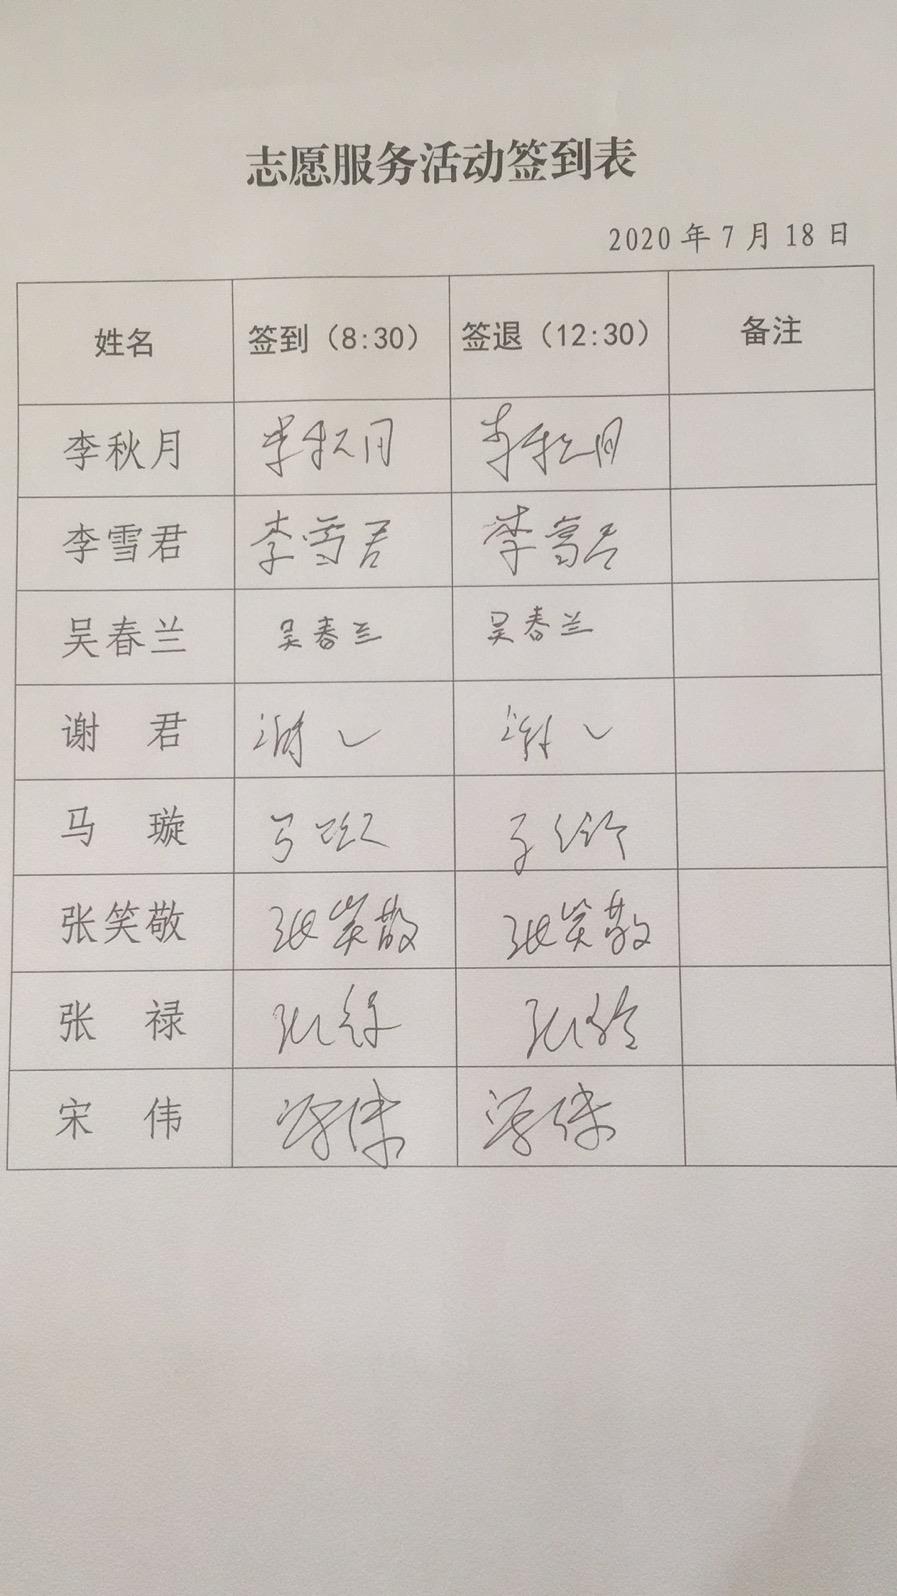 志愿服务活动签到表
2020 年 7 月 18 日
姓名 签到（8:30） 签退（12:30） 备注
李秋月 李秋月 李秋月
李雪君 李雪君 李雪君
吴春兰 吴春兰 吴春兰
谢 君 谢 谢
马 璇 马
张笑敬 张笑敬 张笑敬
张 禄 张禄 张禄
宋 伟 宋伟 宋伟